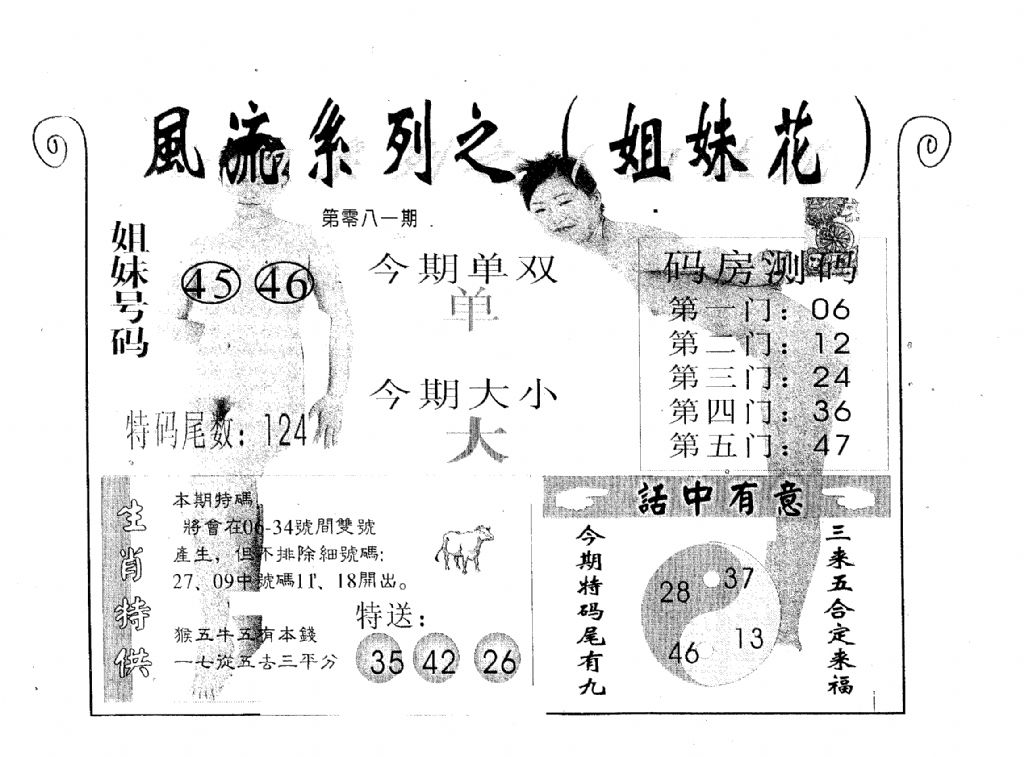 風流系列之（姐妹花）
第零八一期
姐妹号码
45 46
今期单双
单
今期大小
大
特码尾数：124
码房测码
第一门：06
第二门：12
第三门：24
第四门：36
第五门：47
生肖特供
本期特碼，
將會在06-34號間雙號
產生，但不排除細號碼:
27、09中號碼11、18開出。
猴五牛五有本錢
一七從五去三平分
特送：
35 42 26
話中有意
今期特码尾有九
28 37
46 13
三来五合定来福